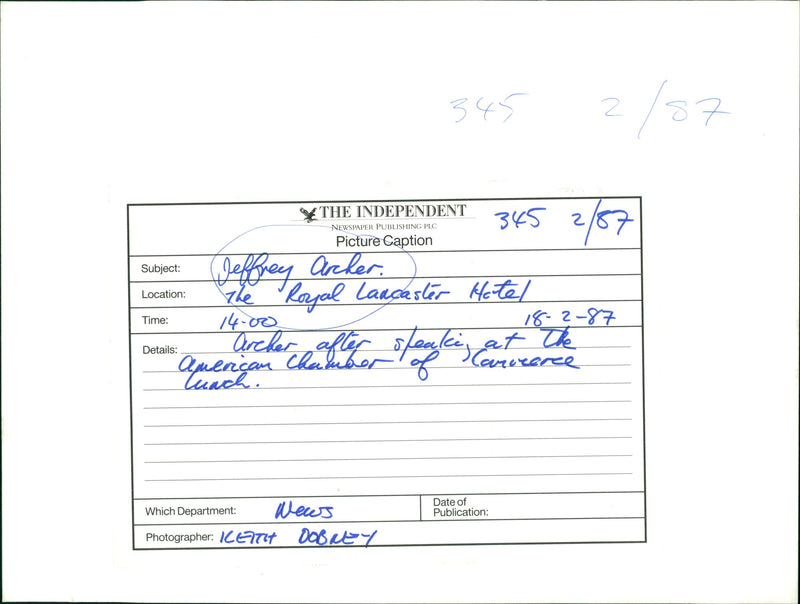 345 2/87
THE INDEPENDENT
NEWSPAPER PUBLISHING PLC
345 2/87
Picture Caption
Subject: Jeffrey Archer.
Location: The Royal Lancaster Hotel
Time: 14-00 18-2-87
Details: Archer after speaking at the
American Chamber of Commerce
lunch.
Which Department: News
Date of
Publication:
Photographer: KEITH DOBNEY